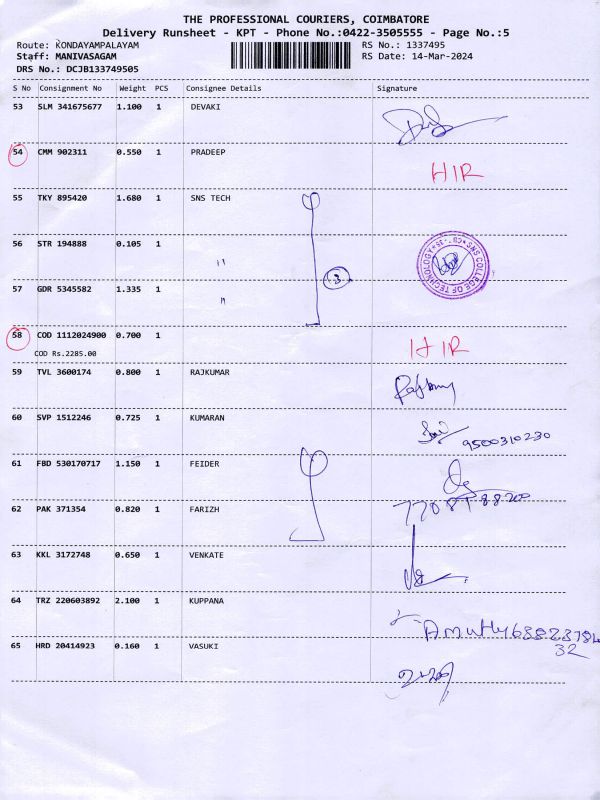 THE PROFESSIONAL COURIERS, COIMBATORE
Delivery Runsheet - KPT - Phone No.:0422-3505555 - Page No.:5
Route: KONDAYAMPALAYAM RS No.: 1337495
Staff: MANIVASAGAM RS Date: 14-Mar-2024
DRS No.: DCJB133749505
S No Consignment No Weight PCS Consignee Details Signature
53 SLM 341675677 1.100 1 DEVAKI
54 CMM 902311 0.550 1 PRADEEP
HIR
55 TKY 895420 1.680 1 SNS TECH
56 STR 194888 0.105 1 "
SNS COLLEGE OF TECHNOLOGY
3
57 GDR 5345582 1.335 1 "
58 COD 1112024900 0.700 1
HIR
COD Rs.2285.00
59 TVL 3600174 0.800 1 RAJKUMAR
60 SVP 1512246 0.725 1 KUMARAN
9500310230
61 FBD 530170717 1.150 1 FEIDER
62 PAK 371354 0.820 1 FARIZH
63 KKL 3172748 0.650 1 VENKATE
64 TRZ 220603892 2.100 1 KUPPANA
32
65 HRD 20414923 0.160 1 VASUKI